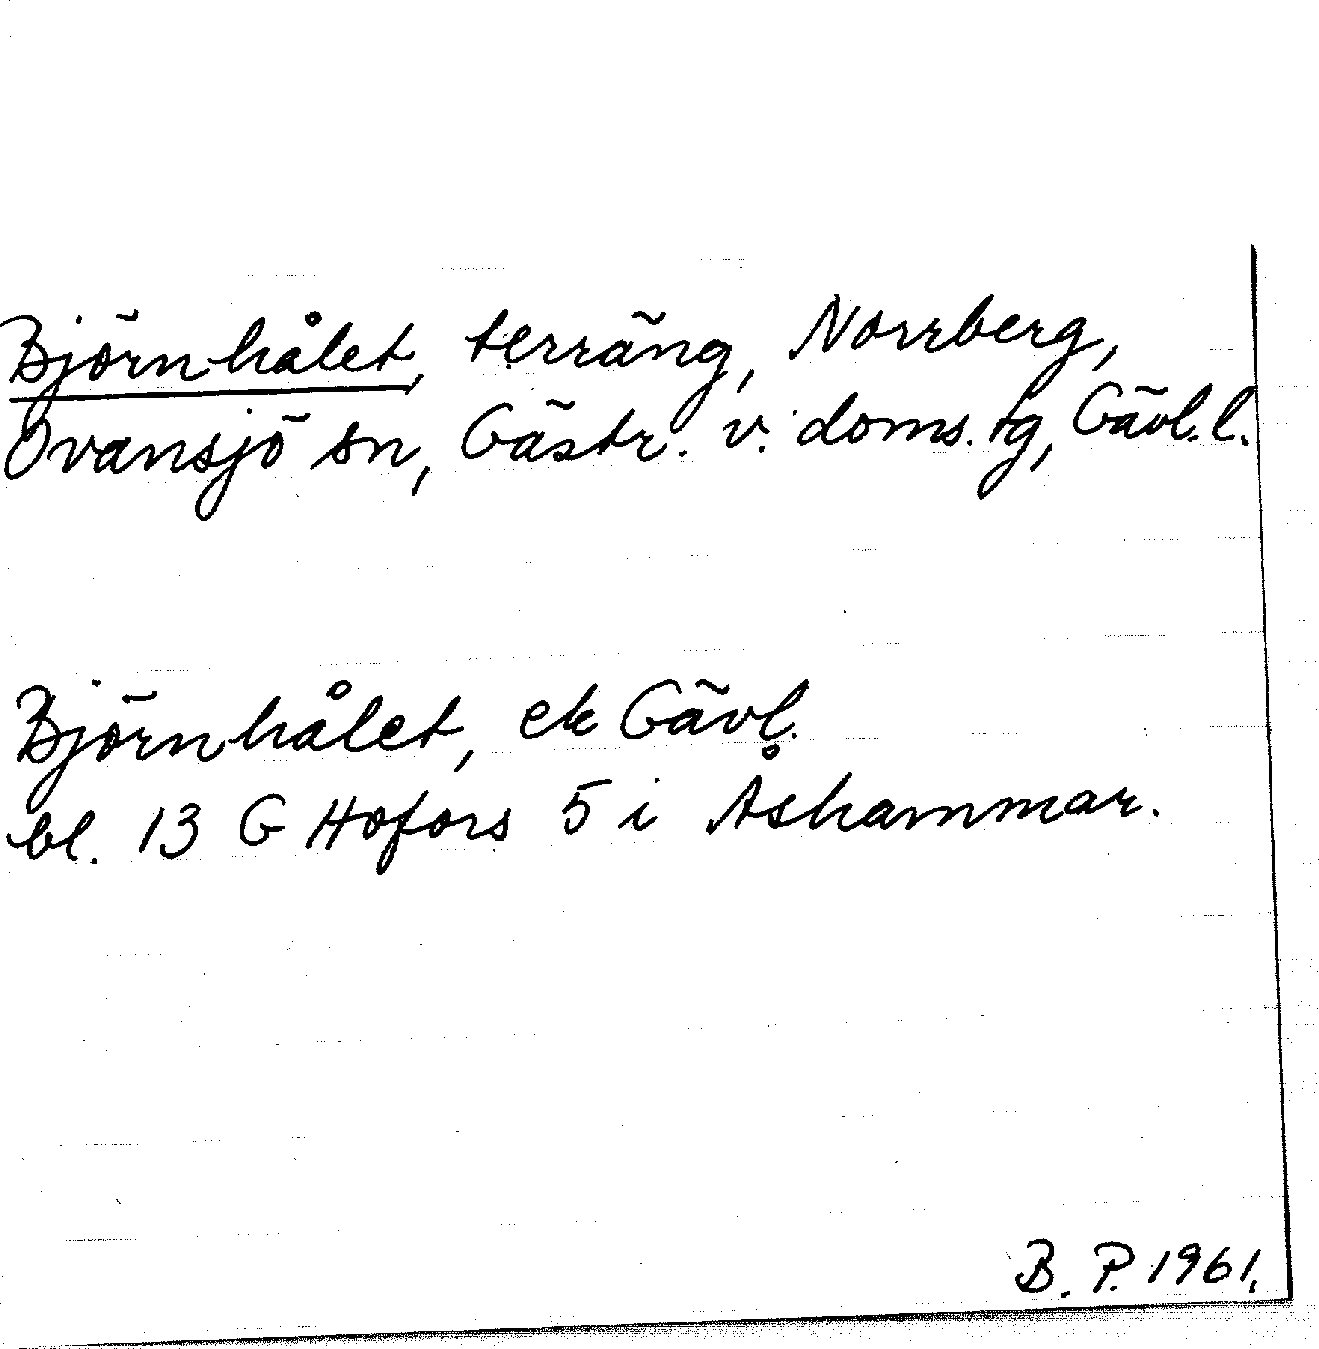 Björnhålet, terräng, Norrberg,
Ovansjö sn, Gästr. v. doms. tg, Gävl. l.
Björnhålet, ek Gävl.
bl. 13 G Hofors 5 i Åshammar.
B. P. 1961.